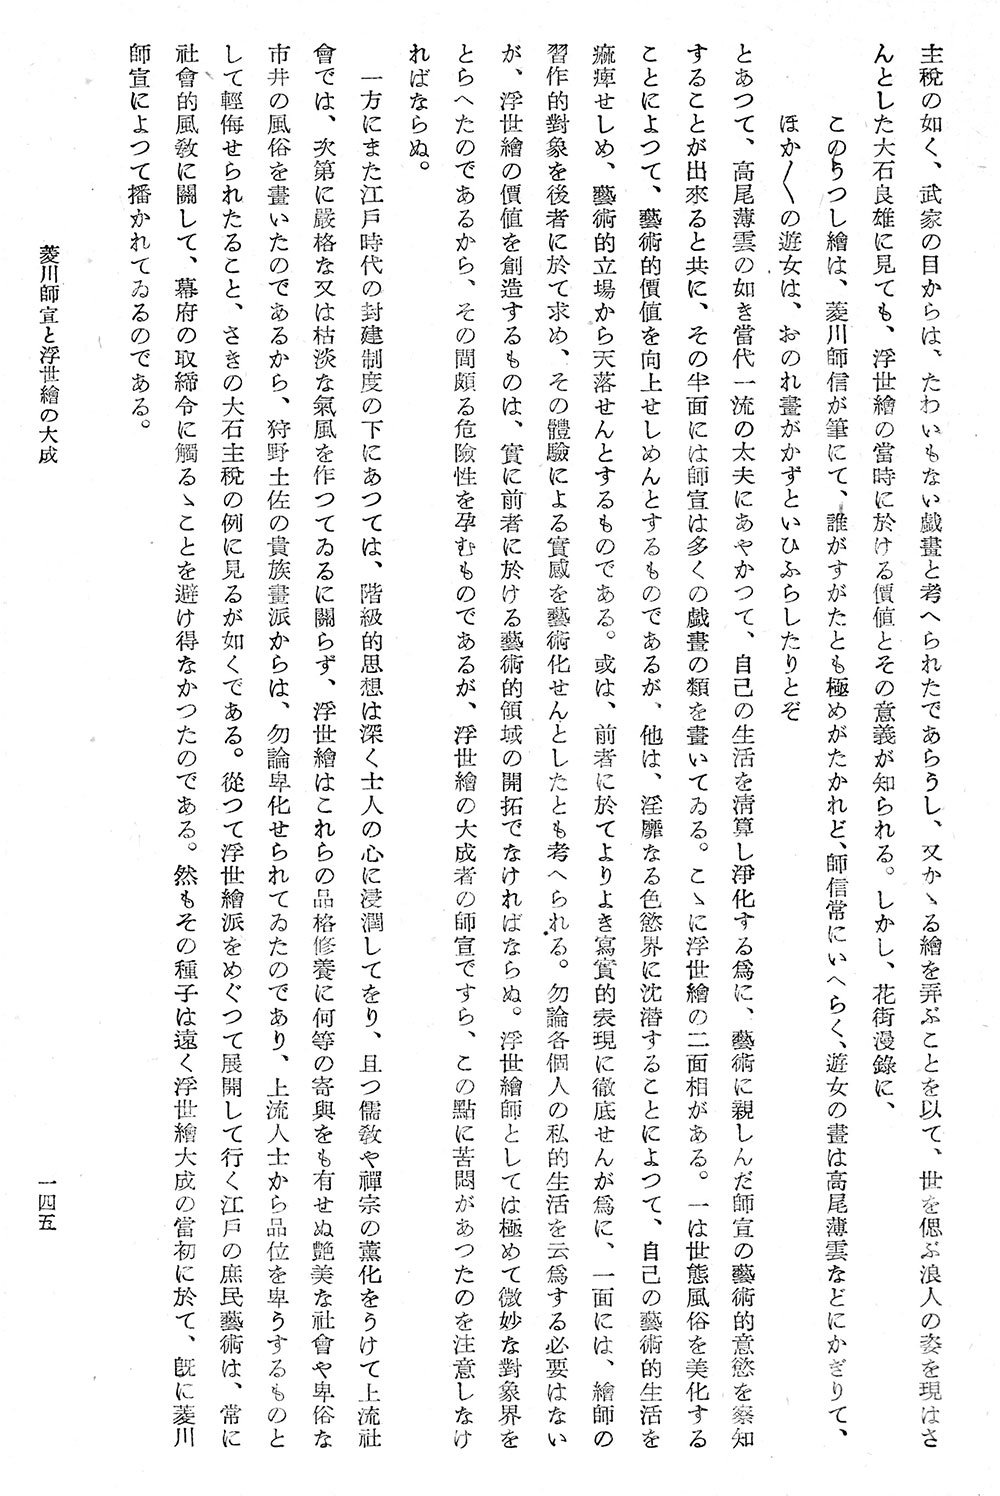 主稅の如く、武家の目からは、たわいもない戲畫と考へられたであらうし、又かゝる繪を弄ぶことを以て、世を偲ぶ浪人の姿を現はさ
んとした大石良雄に見ても、浮世繪の當時に於ける價値とその意義が知られる。しかし、花街漫錄に、
このうつし繪は、菱川師信が筆にて、誰がすがたとも極めがたかれど、師信常にいへらく、遊女の畫は高尾薄雲などにかぎりて、
ほか〱の遊女は、おのれ畫がかずといひふらしたりとぞ
とあつて、高尾薄雲の如き當代一流の太夫にあやかつて、自己の生活を淸算し淨化する爲に、藝術に親しんだ師宣の藝術的意慾を察知
することが出來ると共に、その半面には師宣は多くの戲畫の類を畫いてゐる。こゝに浮世繪の二面相がある。一は世態風俗を美化する
ことによつて、藝術的價値を向上せしめんとするものであるが、他は、淫靡なる色慾界に沈潜することによつて、自己の藝術的生活を
痲痺せしめ、藝術的立場から天落せんとするものである。或は、前者に於てよりよき寫實的表現に徹底せんが爲に、一面には、繪師の
習作的對象を後者に於て求め、その體驗による實感を藝術化せんとしたとも考へられる。勿論各個人の私的生活を云爲する必要はない
が、浮世繪の價値を創造するものは、實に前者に於ける藝術的領域の開拓でなければならぬ。浮世繪師としては極めて微妙な對象界を
とらへたのであるから、その間頗る危險性を孕むものであるが、浮世繪の大成者の師宣ですら、この點に苦悶があつたのを注意しなけ
ればならぬ。
一方にまた江戶時代の封建制度の下にあつては、階級的思想は深く士人の心に浸潤してをり、且つ儒敎や禪宗の薰化をうけて上流社
會では、次第に嚴格な又は枯淡な氣風を作つてゐるに關らず、浮世繪はこれらの品格修養に何等の寄與をも有せぬ艷美な社會や卑俗な
市井の風俗を畫いたのであるから、狩野土佐の貴族畫派からは、勿論卑化せられてゐたのであり、上流人士から品位を卑うするものと
して輕侮せられたること、さきの大石主稅の例に見るが如くである。從つて浮世繪派をめぐつて展開して行く江戶の庶民藝術は、常に
社會的風敎に關して、幕府の取締令に觸るゝことを避け得なかつたのである。然もその種子は遠く浮世繪大成の當初に於て、旣に菱川
師宣によつて播かれてゐるのである。
菱川師宣と浮世繪の大成
一四五